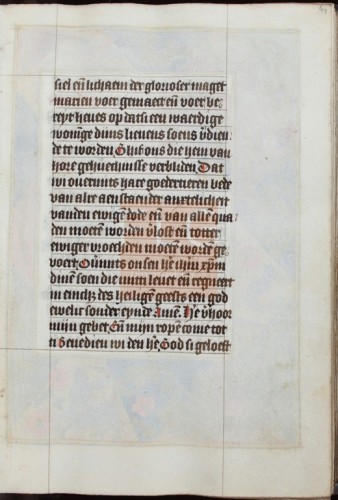 siel en̄ lichaem der glorioser maget
marien voer gemaect en̄ voer be
reyt heues op datsi een waerdige
woni̅ge dijns lieuens soens v̓dien
de te worden. Ghif ons die hem van
hore gehuechnisse verbliden. Dat
wi ouermits hare goedertieren bede
van alre aenstaender anxtelicheit
vanden ewigē dode en̄ van allē qua
den moetē worden v̓lost en̄ totter
ewiger vroechden moetē wordē ge
voert. Ou̓mits onsen he ihm̄ xp̄m
dinē soen die mitti leuet en̄ regneert
in eincheit des heiligē geests een god
ewelic sonder eynde Amē. He v̓hoor
mijn gebet. En̄ mijn ropē come tot
ti Benedien wi den he. God si geloeft